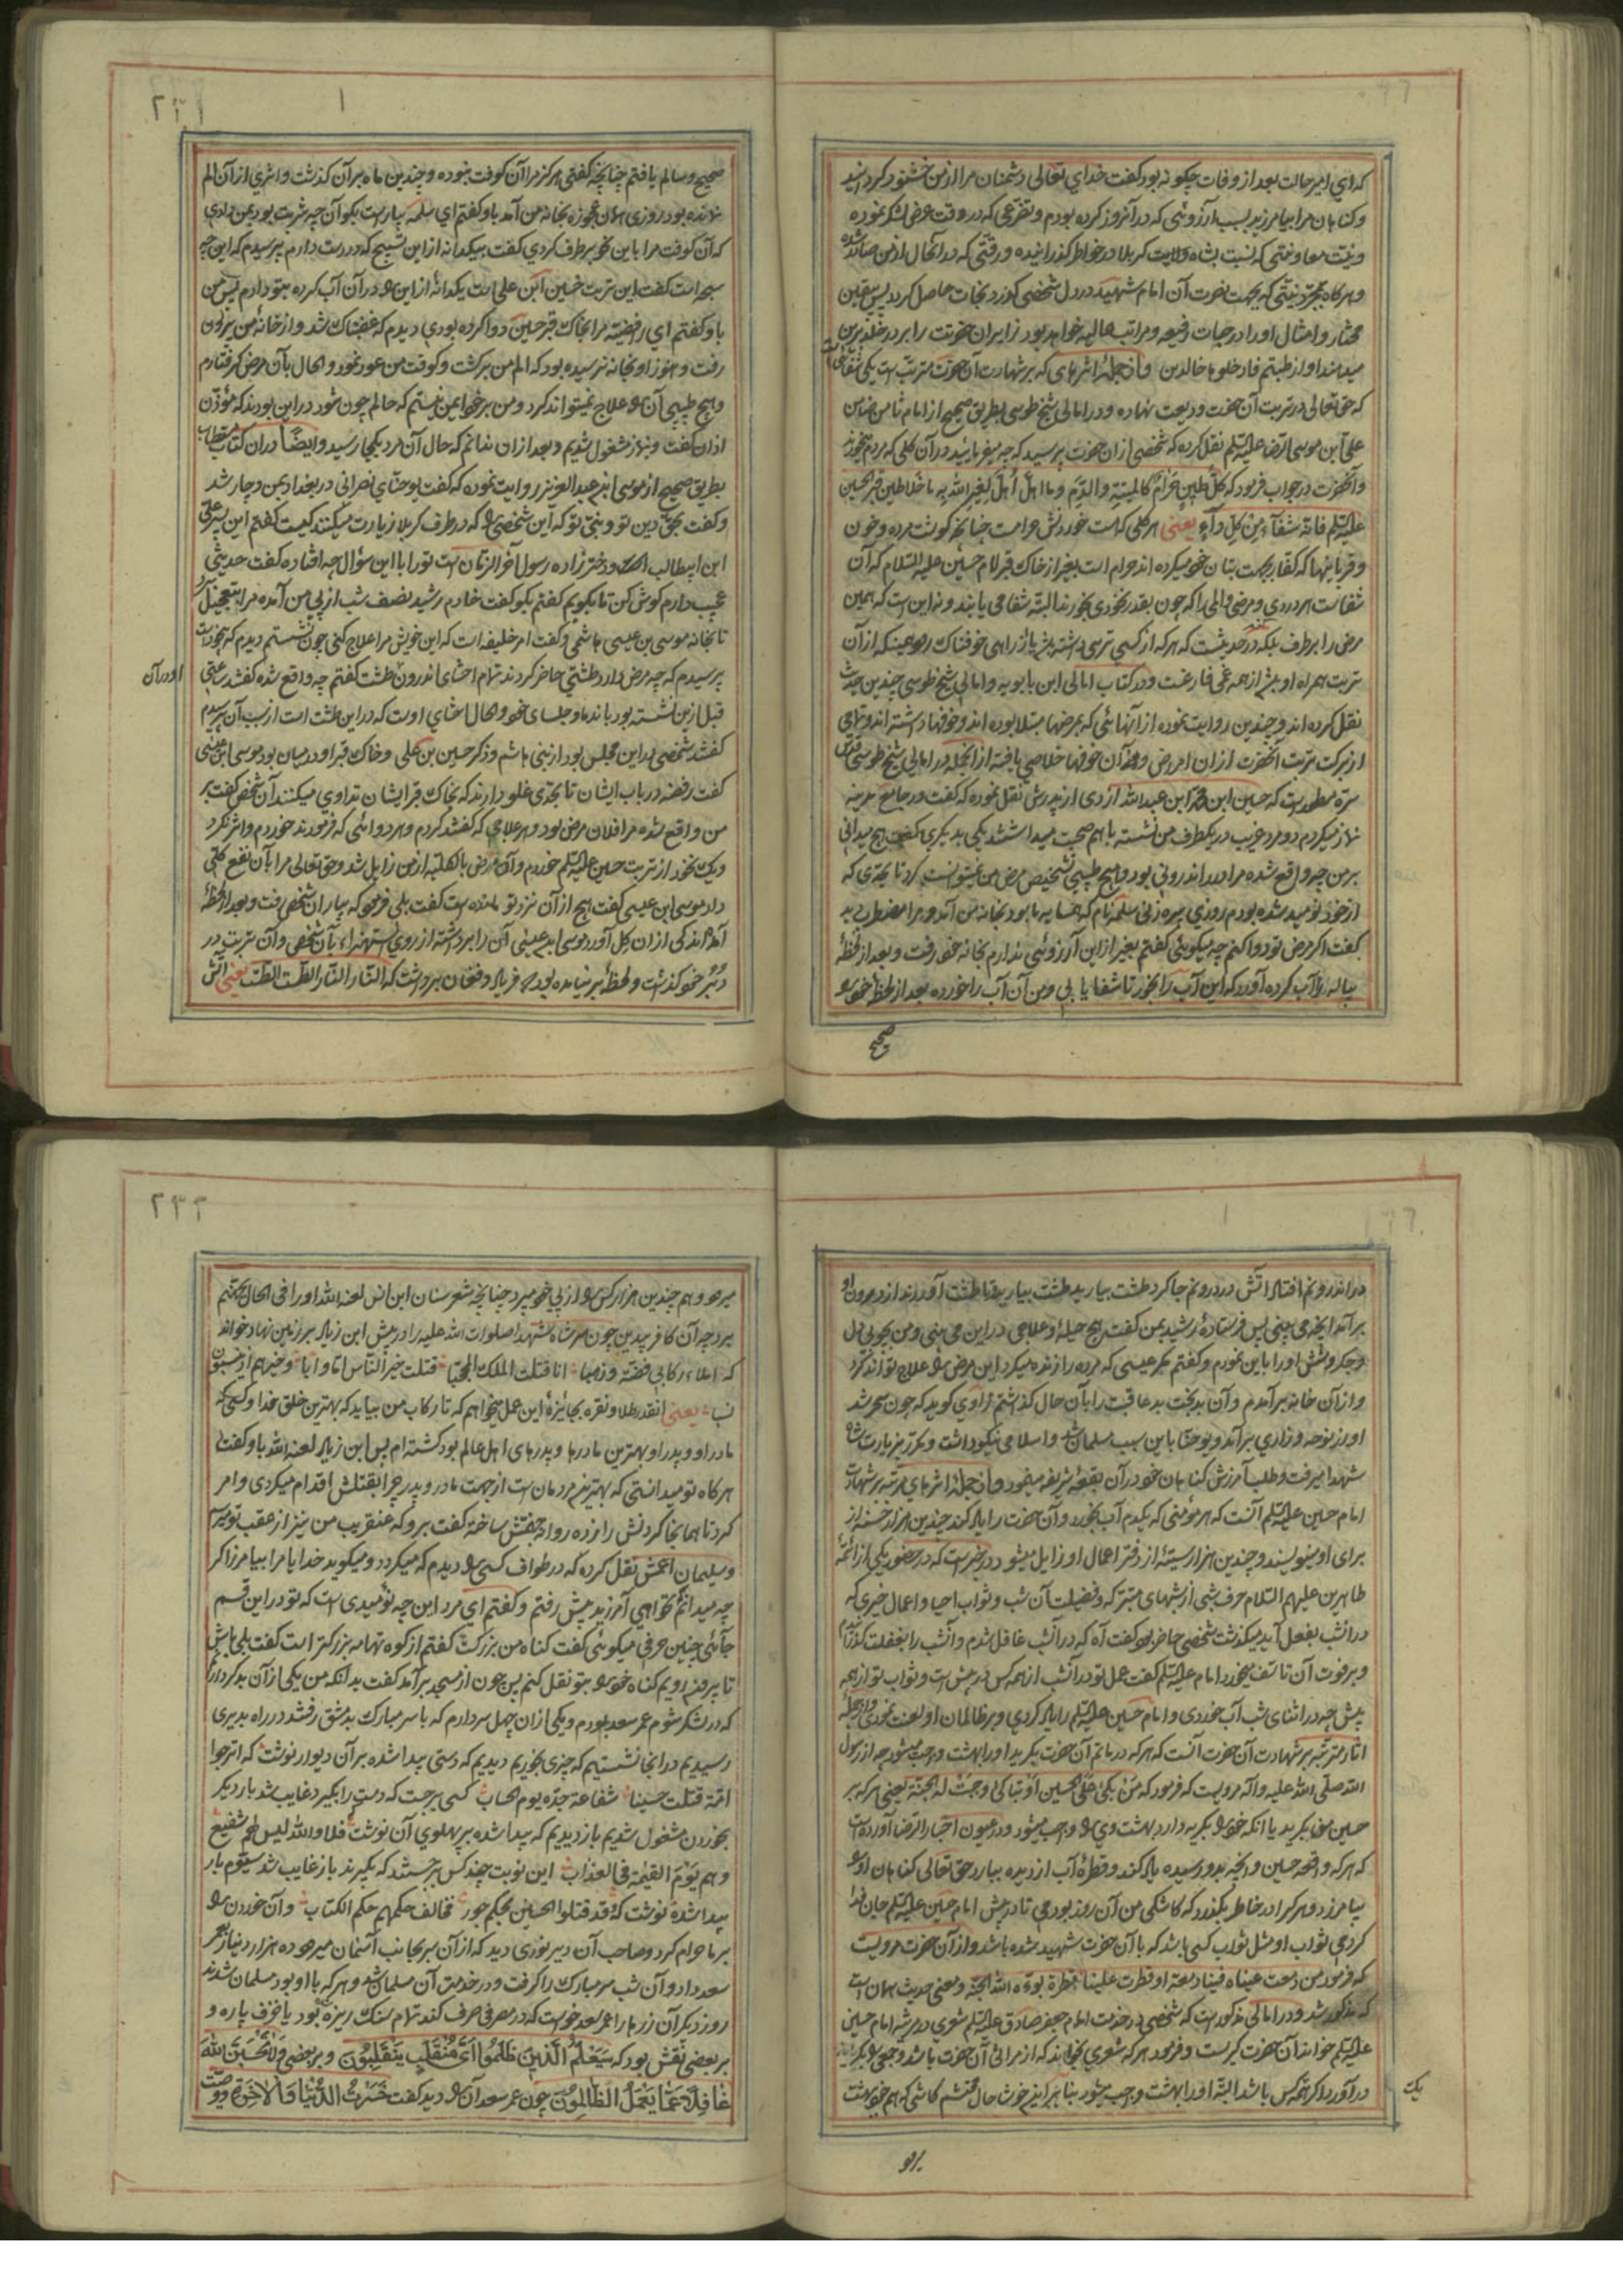 که ای امیر حالت بعد از وفات چگونه بود گفت خدای تعالی دشمنان مرا از من خشنود گردانید
وکناهان مرا بیامرزید بسبب آرزوئی که در آنروز کرده بودم و تضرعی که در وقت عرض لشکر نموده
ونیت معاونتی که نسبت بشاه ولایت کربلا در خاطر گذرانیده و رقتی که در آنحال از من صادر شده
وهرکاه بمجرد نیتی که بجهت نصرت آن امام شهید در دل شخصی کذرد نجات حاصل کردد پس یقین
مختار و امثال او را درجات رفیعه و مراتب عالیه خواهد بود زایران حضرت را بر در خلد برین
میدهند آواز طبتم فادخلوها خالدین و از جمله اثرهای که بر شهادت آن حضرت مترتبست یکی شفائی است
که حق تعالی در تربت آن حضرت ودیعت نهاده و در امالی شیخ طوسی بطریق صحیح از امام ثامن ضامن
علی ابن موسی الرضا علیه السلم نقل کرده که شخصی ازان حضرت پرسید که چه میفرمایید در آن کلی که مردم میخورند
وآنحضرت در جواب فرمود که کل طین حرام کالمیتة والدم وما اهل لغیر الله به ما خلا طین قبر الحسین
علیه السلم فانه شفاء من کل داء یعنی هر کلی که است خوردنش حرامست چنانچه کوشت مرده و خون
وقربانیها که کفار بجهت بتان خود میکرده اند حرام است بغیر از خاک قبر امام حسین علیه السلام که آن
شفاست هر دردی و مرضی و المی را که چون بقدر نخودی بخورند البته شفا می یابند و نه این است که همین
مرض را برطرف بلکه در حدیثست که هر که از کسی ترسی داشته باشد یا از راهی خوفناک رود همینکه از آن
تربت همراه او باشد از همه غمی فارغست ودر کتاب امالی ابن بابویه و امالی شیخ طوسی چندین حدیث
نقل کرده اند و چندین روایت نموده از آنهائی که بمرضها مبتلا بوده اند و خوفها داشته اند و تمامی
از برکت تربت آنحضرت ازان امراض و همه آن خوفها خلاصی یافته از انجمله در امالی شیخ طوسی قدس
سره مسطورست که حسین ابن محمد ابن عبدالله ازدی از پدرش نقل نموده که گفت در جامع مدینه
نماز میکردم دو مرد غریب در یکطرف من نشسته با هم صحبت میداشتند یکی بدیکری کفت هیچ میدانی
بر من چه واقع شده مرا درد اندرونی بود و هیچ طبیبی تشخیص مرض من نمیتوانست کرد تا بحدی که
از خود نومید شده بودم روزی پیره زنی سلمه نام که همسایه ما بود بخانه من آمد و مرا مضطرب دید
کفت اکر مرض تو دوا کنم چه میکوئی کفتم بغیر از این آرزوئی ندارم بخانه خود رفت و بعد از لحظه
پیاله را آب کرده آورد که این آب را بخور تا شفا یابی و من آن آب را خورده بعد از لحظه خود را
صحیح
۲۳۱
صحیح وسالم یافتم چنانچه کفتی هرکز مرا آن کوفت نبوده و چندین ماه بر آن کذشت واثری از آن الم
نمانده بود روزی همان عجوزه بخانه من آمد باو کفتم ای سلمه بیا راست بکو آن چه شربت بود بمن دادی
که آن کوفت مرا باین نحو برطرف کردی کفت بیکدانه از این تسبیح که در دست دارم پرسیدم که این چه
سبحه است کفت این تربت حسین ابن علی است یکدانه از این را در آن آب کرده بتو دادم پس من
باو کفتم ای رافضیه مرا بخاک قبر حسین دوا کرده بودی دیدم که غضبناک شد و از خانه من بیرون
رفت و هنوز او بخانه نرسیده بود که الم من برکشت و کوفت من عود نمود و الحال بآن مرض کرفتارم
وهیچ طبیبی آن را علاج نمیتواند کرد و من بر خود ایمن نیستم که حالم چون شود در این بودند که مؤذن
اذان کفت و نماز مشغول شدیم و بعد ازان ندانم که حال آن مرد بکجا رسید وایضا دران کتاب مستطاب
بطریق صحیح از موسی ابن عبدالعزیز روایت نموده که کفت یوحنای نصرانی در بغداد بمن دچار شد
وکفت بحق دین تو و نبی تو که این شخصی را که در طرف کربلا زیارت میکنند کیست کفتم این پسر علی
ابن ابیطالب است و دخترزاده رسول آخرالزمان است تو را با این سؤال چه افتاده کفت حدیثی
عجیب دارم کوش کن تا بکویم کفتم بکو کفت خادم رشید نصف شب از پی من آمده مرا بتعجیل برد
تا بخانه موسی بن عیسی هاشمی و کفت امر خلیفه است که این خویش مرا علاج کنی چون نشستم دیدم که بیخودست
پرسیدم که چه مرض دارد طشتی حاضر کردند تمام احشای اندرون طشت کفتم چه واقع شده کفتند ساعتی
او در آن
قبل از من نشسته بود با ندما و جلسای خود و الحال احشای اوست که در این طشت است از سبب آن پرسیدم
کفتند شخصی در این مجلس بود از بنی هاشم و ذکر حسین بن علی و خاک قبر او در میان بود موسی ابن عیسی
کفت رفضه در باب ایشان تا بحدی غلو دارند که بخاک قبر ایشان تداوی میکنند آن شخص کفت بر
من واقع شده مرا فلان مرض بود و هر علاجی که کفتند کردم و هر دوائی که فرمودند خوردم و اثر نکرد
ویک نخود از تربت حسین علیه السلم خوردم و آن مرض بالکلیه از من زایل شد و حق تعالی مرا بآن نفع کلی
داد موسی ابن عیسی کفت هیچ از آن نزد تو مانده است کفت بلی فرمود که بیار آن شخص رفت و بعد از لحظه
آمد اندکی ازان کل آورد موسی ابن عیسی آن را برداشته از روی استهزاء بآن شخص و آن تربت در
دبر خود کذاشت و لحظه بر نیامده بود که فریاد و فغان برداشت که النار النار الطست الطست یعنی آتش
در اندرونم افتاد آتش در درونم جا کرد طشت بیارید طشت بیارید تا طشت آوردند از درون او
برآمد آنچه می بینی پس فرستاده رشید بمن کفت هیچ حیله و علاجی در این می بینی و من بچوبی دل
وجکر و شش او را باین نمودم و کفتم مکر عیسی که مرده را زنده میکرد این مرض را علاج تواند کرد
واز آن خانه برآمدم و آن بدبخت بدعاقبت را بآن حال کذاشتم راوی کوید که چون سحر شد
آواز نوحه و زاری برآمد و یوحنا باین سبب مسلمان شد و اسلامی نیکو داشت و مکرر بزیارت شاه
شهدا میرفت و طلب آمرزش کناهان خود در آن بقعه شریفه مینمود واز جمله اثرهای مترتبه بر شهادت
امام حسین علیه السلم آنست که هر مؤمنی که یکدم آب بخورد و آن حضرت را یاد کند چندین هزار حسنه از
برای او مینویسند و چندین هزار سیئه از دفتر اعمال او زایل میشود و در خبرست که در حضور یکی از ائمه
طاهرین علیهم السلام حرف شبی از شبهای متبرکه و فضیلت آن شب و ثواب احیا و اعمال خیری که
در آنشب بفعل آید میکذشت شخصی حاضر بود کفت آه که در آنشب غافل شدم و آنشب را بغفلت کذراندم
وبر فوت آن تاسف میخورد امام علیه السلم کفت عمل تو در آنشب از همه کس در پیش است و ثواب تو از همه
بیش چه در اثنای شب آب خوردی و امام حسین علیه السلم را یاد کردی و بر ظالمان او لعنت نمودی و از جمله
آثار مترتبه بر شهادت آن حضرت آنست که هر که در ماتم آن حضرت بکرید او را بهشت واجب میشود چه از رسول
الله صلی الله علیه واله مرویست که فرمود که من بکی علی الحسین او تباکی وجبت له الجنة یعنی هر که بر
حسین من بکرید یا آنکه خود را بکریه دارد بهشت وی را واجب میشود و در عیون اخبار الرضا آورده است
که هر که واقعه حسین و آنچه بدو رسیده یاد کند و قطره آب از دیده ببارد حق تعالی کناهان او را
بیامرزد و هر که را در خاطر بکذرد که کاشکی من آن روز بودمی تا در پیش امام حسین علیه السلم جان فدا
کردمی ثواب او مثل ثواب کسی باشد که با آن حضرت شهید شده باشد و از آن حضرت مرویست
که فرمود من دمعت عیناه فینا دمعة او قطرت علینا قطرة بوءه الله الجنة و معنی حدیث همان است
که مذکور شد و در امالی مذکور است که شخصی در خدمت امام جعفر صادق علیه السلم شعری در مرثیه امام حسین
علیه السلم خواند آن حضرت کریست و فرمود هر که شعری بخواند که از مراثی آن حضرت باشد و جمعی را بکریه
در آورد اکر همه یک کس باشد البته او را بهشت واجب میشود بنابراین خوشا حال محتشم کاشی که هم خود بهشت
میرود
۲۳۲
میرود و هم چندین هزار کس را از پی خود میبرد چنانچه شعر سنان ابن انس لعنه الله او را فی الحال بجهنم
برد چه آن کافر بیدین چون سر شاه شهدا صلوات الله علیه را در پیش ابن زیاد بر زمین نهاد خواند
که املاء رکابی فضة و ذهبا انا قتلت الملک المحجبا قتلت خیر الناس اما و ابا و خیرهم اذ ینسبون
نسبا یعنی آنقدر طلا و نقره بجایزه این عمل میخواهم که تا رکاب من بیاید که بهترین خلق خدا و کسی که
مادر او و پدر او بهترین مادرها و پدرهای اهل عالم بود کشته ام پس ابن زیاد لعنه الله باو کفت
هرکاه تو میدانستی که بهترین مردمان است از جهت مادر و پدر چرا بقتلش اقدام میکردی و امر
کرد تا همانجا کردنش را زده روانه جهنمش ساخته کفت برو که عنقریب من نیز از عقب تو میرسم
وسلیمان اعمش نقل کرده که در طواف کسی را دیدم که میکردد و میکوید خدایا مرا بیامرز اکر
چه میدانم نخواهی آمرزید پیش رفتم و کفتم ای مرد این چه نومیدی است که تو در این قسم
جائی چنین حرفی میکوئی کفت کناه من بزرکست کفتم از کوه تهامه بزرکتر است کفت بلی باش
تا بیرون رویم کناه خود را بتو نقل کنم پس چون از مسجد برآمد کفت بدانکه من یکی از آن بدکردارانم
که در لشکر شوم عمر سعد بودم و یکی ازان چهل سردارم که با سر مبارک بدمشق رفتند در راه بدیری
رسیدیم در انجا نشستیم که چیزی بخوریم دیدیم که دستی پیدا شده بر آن دیوار نوشت که اترجوا
امة قتلت حسینا شفاعة جده یوم الحساب کسی برجست که دست را بگیرد غایب شد بار دیکر
بخوردن مشغول شدیم باز دیدیم که پیدا شده بر پهلوی آن نوشت فلا والله لیس لهم شفیع
وهم یوم القیمة فی العذاب این نوبت چند کس برجستند که بگیرند باز غایب شد سیوم بار
پیدا شده نوشت که وقد قتلوا الحسین بحکم جور فخالف حکمهم حکم الکتاب وآن خوردن را
بر ما حرام کرد و صاحب آن دیر نوری دید که از آن سر بجانب آسمان میرود ده هزار دینار بعمر
سعد داد و آن شب سر مبارک را کرفت و در خدمت آن مسلمان شد و هر که با او بود مسلمان شدند
روز دیکر آن زرها را عمر سعد خواست که در مصرفی صرف کند تمام سنک ریزه بود یا خزف پاره و
بر بعضی نقش بود که سیعلم الذین ظلموا ای منقلب ینقلبون و بر بعضی ولا تحسبن الله
غافلا عما یعمل الظالمون چون عمر سعد آن را دید کفت خسرت الدنیا والاخرة و وصیت